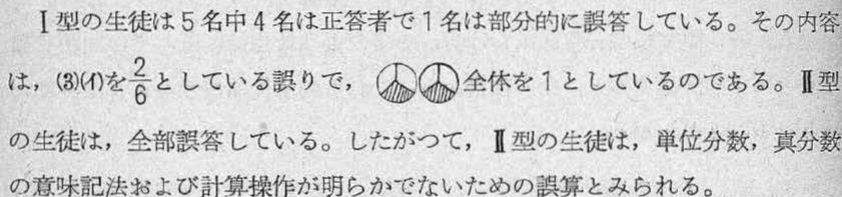 Ⅰ型の生徒は5名中4名は正答者で1名は部分的に誤答している。その内容
は，(3)(イ)を2/6としている誤りで，全体を1としているのである。Ⅱ型
の生徒は，全部誤答している。したがつて，Ⅱ型の生徒は，単位分数，真分数
の意味記法および計算操作が明らかでないための誤算とみられる。